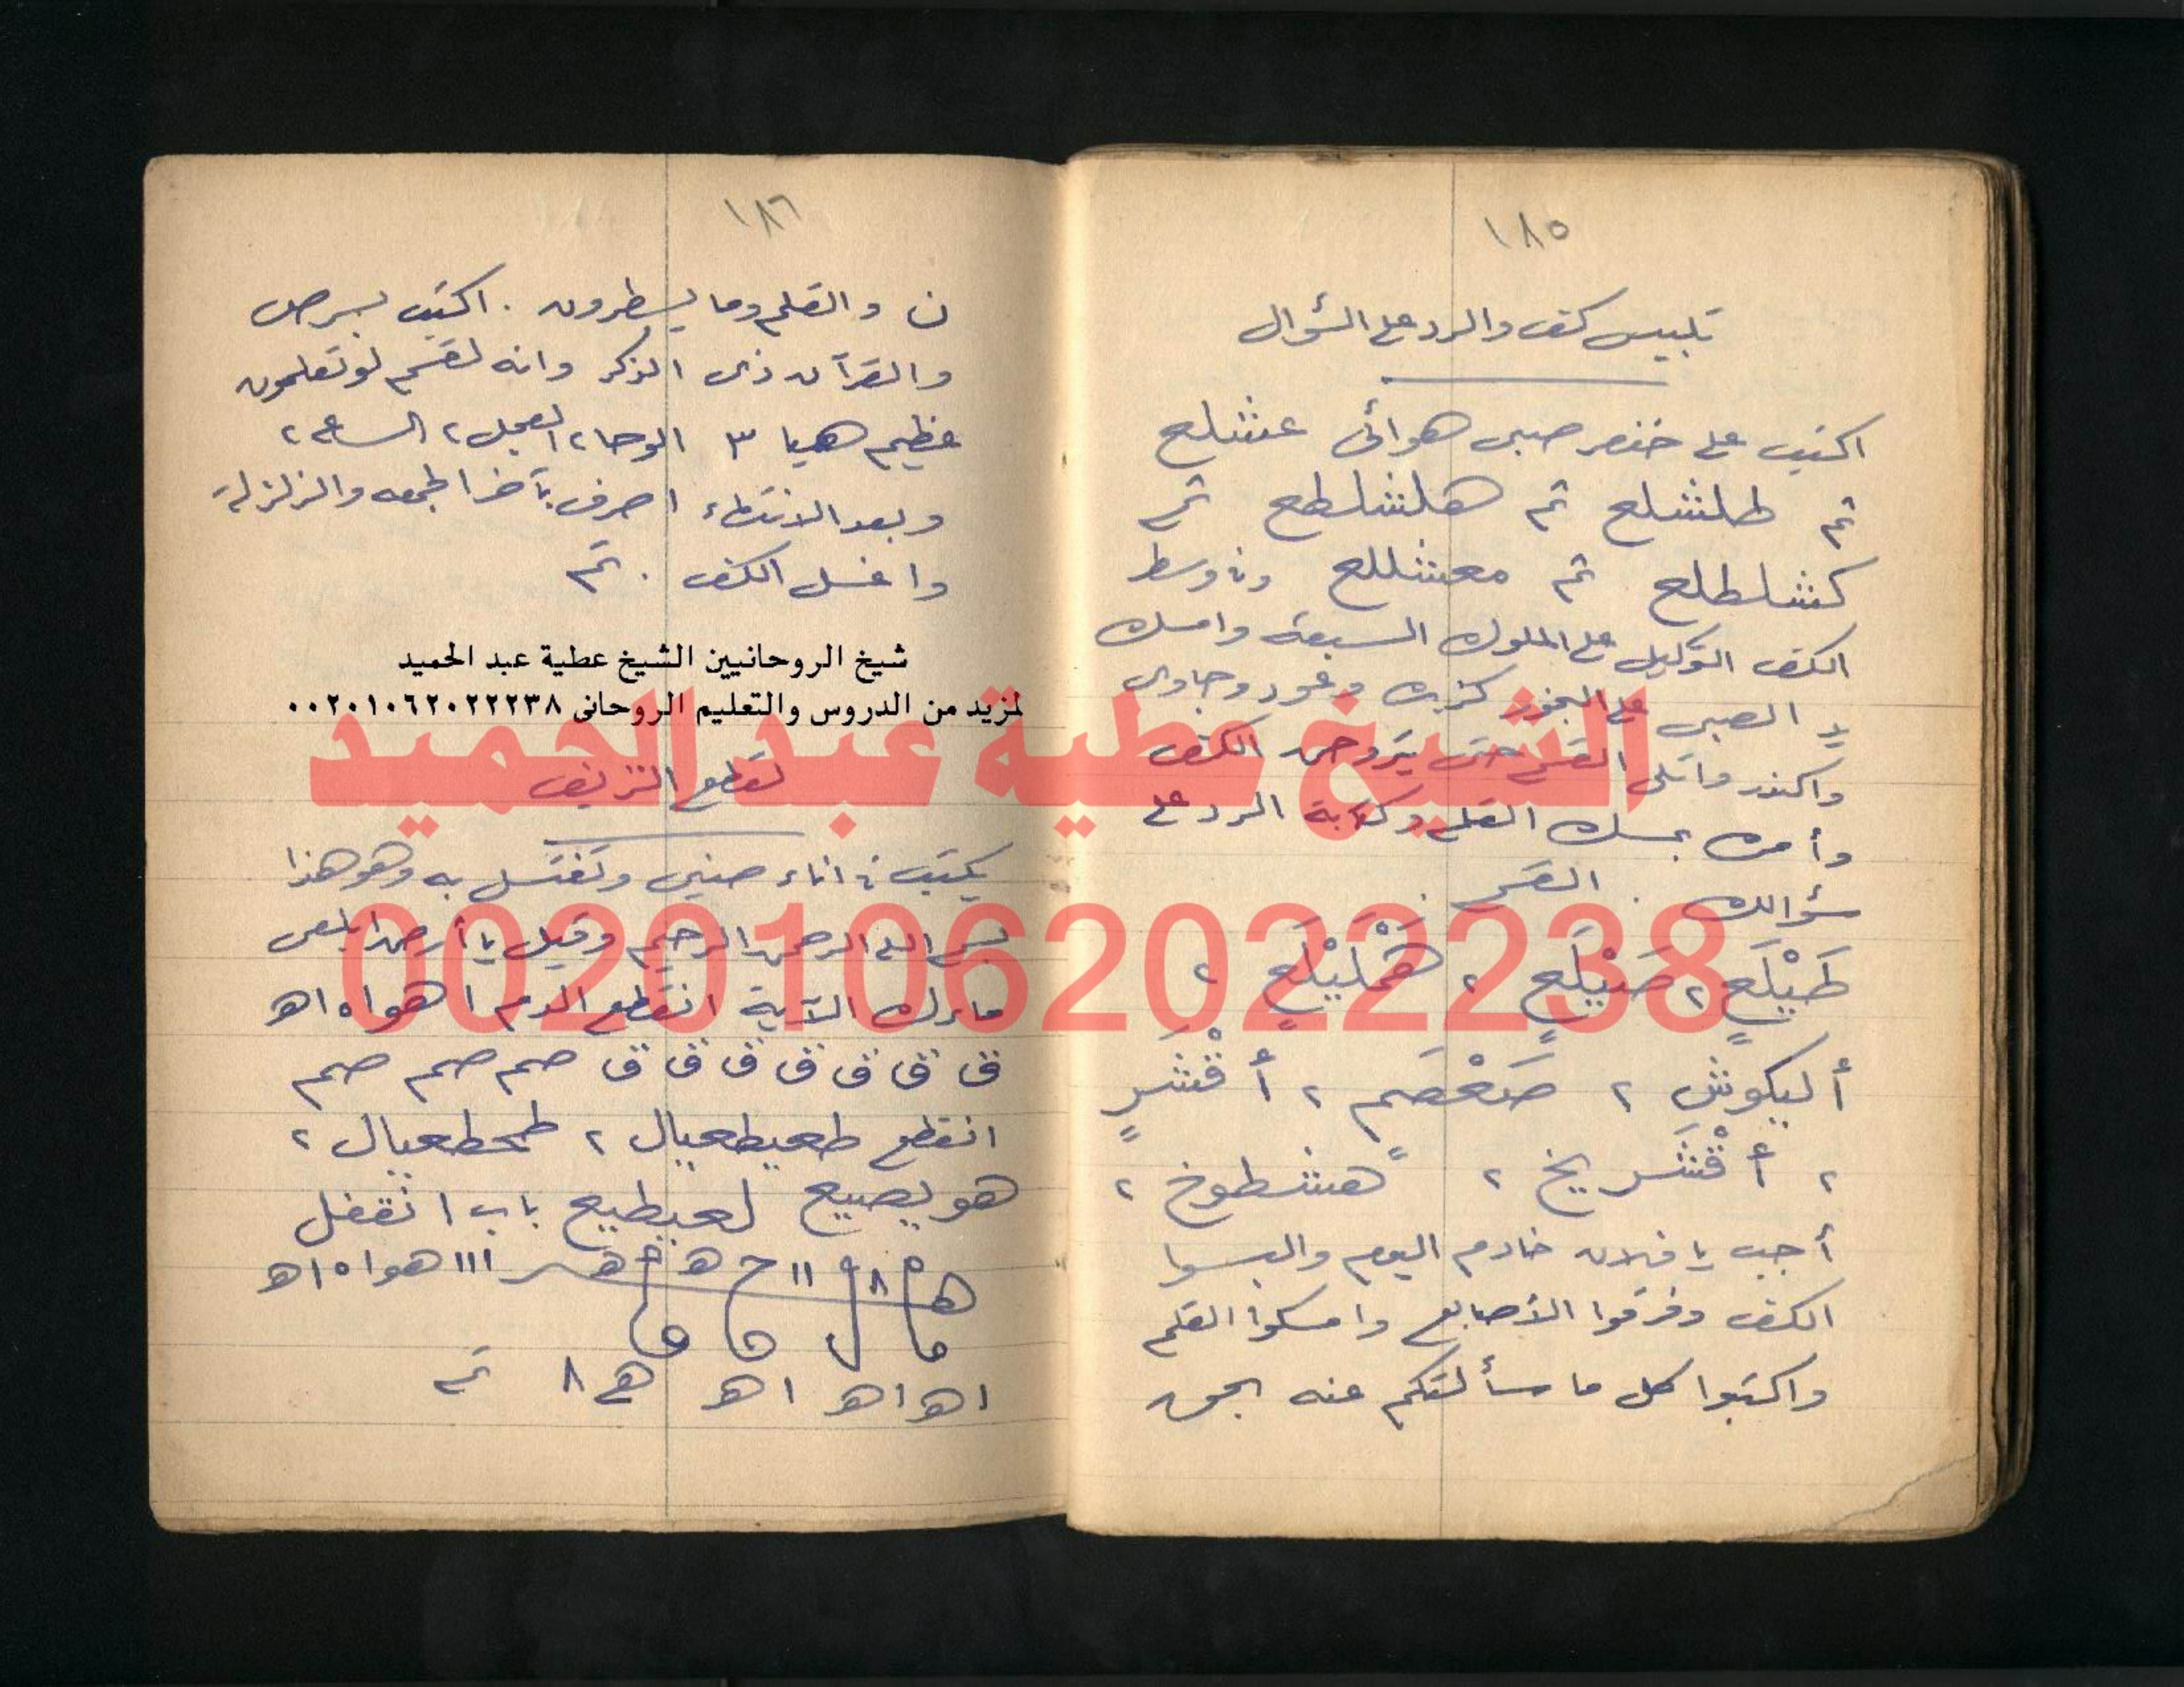 ١٨٥
تلبيس كف والرد على السؤال
اكتب على خنصر صبى هوائى عشلع
ثم طلشلع ثم هلشلطع ثم
كشلطلع ثم معشللع وفى وسط
الكف التوكيل على الملوك السبعة وامسك
يد الصبى على البخور كزبره وعود وجاوى
واكندر واتلى القسم حتى يتروحن الكف
وأمره بمسك القلم وكتابة الرد على
سؤالك . القسم .
طَيْلَعٍ ٢ صَيْلَعٍ ٢ هَمْلَيْلَعٍ ٢
أليكوش ٢ صَعْصَمٍ ٢ أقْشَرٍ
٢ أقْشَريخ ٢ هشطوخ ٢
أجب يا فلان خادم اليوم والبسوا
الكف وفرقوا الأصابع وامسكوا القلم
واكتبوا كل ما سألتكم عنه بحق
١٨٦
ن والقلم وما يسطرون . اكتب بسر ص
والقرآن ذى الذكر وانه لقسم لو تعلمون
عظيم هيا ٣ الوحا ٢ العجل ٢ الساعة ٢
وبعد الانتهاء اصرف بآخر الجمعه والزلزلة
واغسل الكف . تم
شيخ الروحانيين الشيخ عطية عبد الحميد
لمزيد من الدروس والتعليم الروحانى ٠٠٢٠١٠٦٢٠٢٢٢٣٨
الشيخ عطية عبد الحميد
لقطع النزيف
يكتب فى اناء صينى وتغتسل به وهو هذا
بسم الله الرحمن الرحيم وقيل يا أرض ابلعى
00201062022238
ماءك الآية انقطع الدم ا هوا ه اهـ
ق ق ق ق ق ق ق صم صم صم
انقطع طعيطعيال ٢ طمحطعيال ٢
هويصيع لعيطيع باب انقفل
ااا هوا ه اهـ
اهـ اهـ اهـ ٨ تم